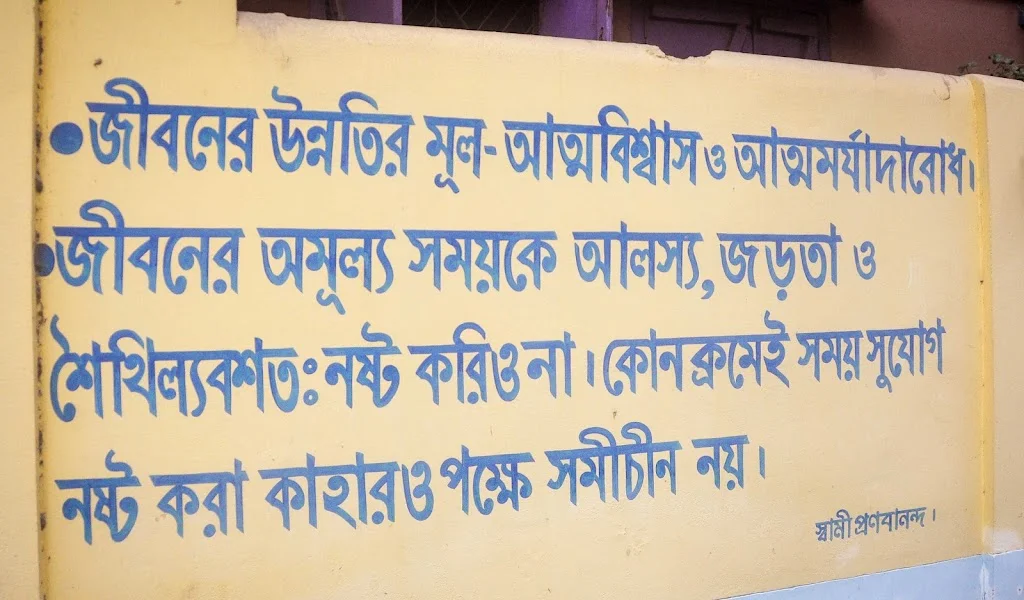 • জীবনের উন্নতির মূল-আত্মবিশ্বাস ও আত্মমর্যাদাবোধ।
• জীবনের অমূল্য সময়কে আলস্য, জড়তা ও
শৈথিল্যবশতঃ নষ্ট করিও না। কোনক্রমেই সময় সুযোগ
নষ্ট করা কাহারও পক্ষে সমীচীন নয়।
স্বামী প্রণবানন্দ।